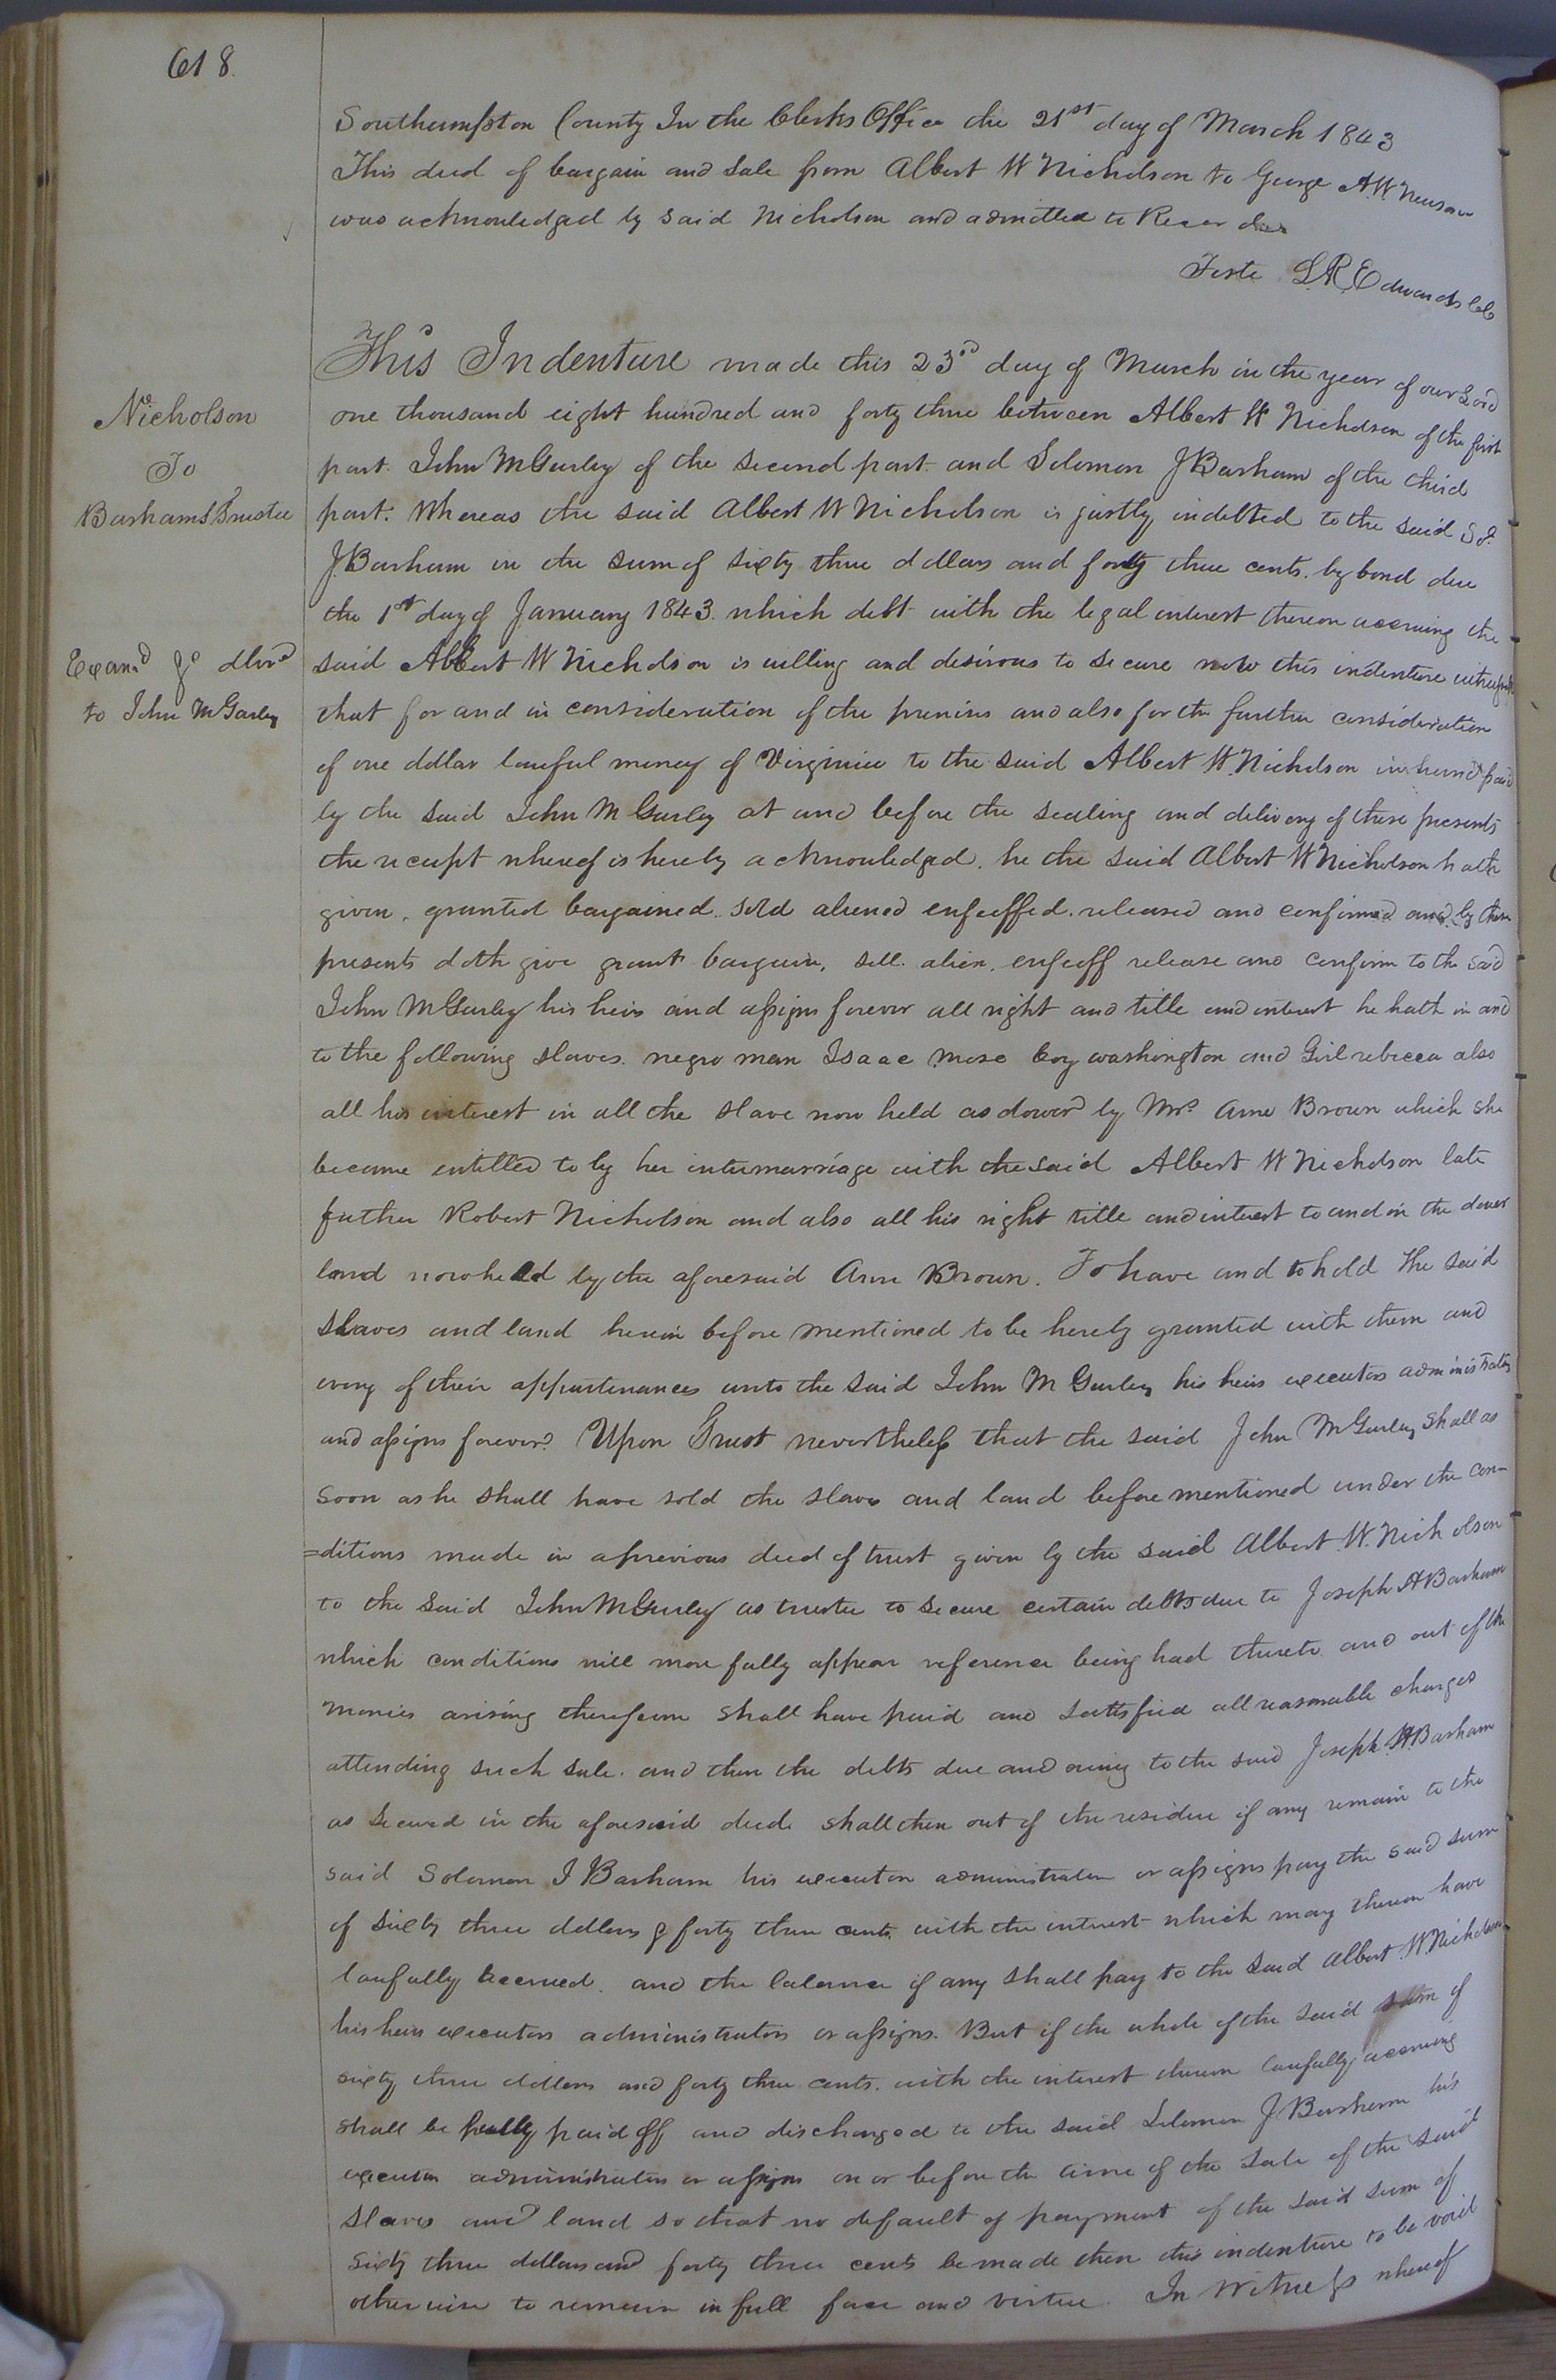 618.
Southampton County In the Clerks Office the 21st day of March 1843
This deed of bargain and sale from Albert W Nicholson to George A.W. Newsom
was acknowledged by said Nicholson and admitted to Record
Teste L.R. Edwards
This Indenture made this 23rd day of March in the year of our Lord
Nicholson
To
Barhams Trustee
one thousand eight hundred and forty three between Albert W Nicholson of the first
part. John M Gurley of the second part. and Solomon J Barham of the third
part. Whereas the said Albert W Nicholson is justly indebted to the said Sol.
J. Barham in the sum of sixty three dollars and forty three cents. by bond due
the 1st day of January 1843. which debt with the legal interest thereon accruing the
Examd & dlvrd
to John M Gurley
said Albert W Nicholson is willing and desirous to secure now this indenture witnesseth
that for and in consideration of the premises and also for the further consideration
of one dollar lawful money of Virginia to the said Albert W. Nicholson in hand paid
by the said John M Gurley at and before the sealing and delivery of these presents
the receipt whereof is hereby acknowledged. he the said Albert W Nicholson hath
given, granted bargained. sold aliened enfeoffed. released and confirmed and by these
presents doth give grant bargain, sell. alien. enfeoff release and confirm to the said
John M Gurley his heirs and assigns forever all right and title and interest he hath in and
to the following slaves. negro man Isaac Mose boy washington and Girl rebecca also
all his interest in all the slave now held as dower by Mrs. Ann Brown which she
became entitled to by her intermarriage with the said Albert W Nicholson late
father Robert Nicholson and also all his right title and interest to and in the dower
land now held by the aforesaid Ann Brown. To have and to hold The said
slaves and land herein before mentioned to be hereby granted with them and
every of their appurtenances unto the said John M Gurley his heirs executors administrators
and assigns forever. Upon Trust nevertheless that the said John M Gurley shall as
soon as he shall have sold the slaves and land before mentioned under the con-
=ditions made in a previous deed of trust given by the said Albert W. Nicholson
to the said John M Gurley as trustee to secure certain debts due to Joseph H Barham
which conditions will more fully appear reference being had thereto. and out of the
monies arising therefrom shall have paid and sattsfied all reasonable charges
attending such sale. and then the debts due and owing to the said Joseph H. Barham
as secured in the aforesaid deed. shall then out of the residue if any remain to the
said Solomon J Barham his executor administrator or assigns pay the said sum
of sixty three dollars & forty three cents. with the interest which may thereon have
lawfully accrued. and the balance if any shall pay to the said Albert W. Nicholson
his heirs executors administrators or assigns. But if the whole of the said sum of
sixty three dollars and forty three cents. with the interest thereon lawfully accruing
shall be fully paid off and discharged to the said Solomon J Barham his
executor administrator or assigns on or before the time of the sale of the said
slaves and land so that no default of payment of the said sum of
sixty three dollars and forty three cents be made then this indenture to be void
otherwise to remain in full force and virtue. In Witness whereof